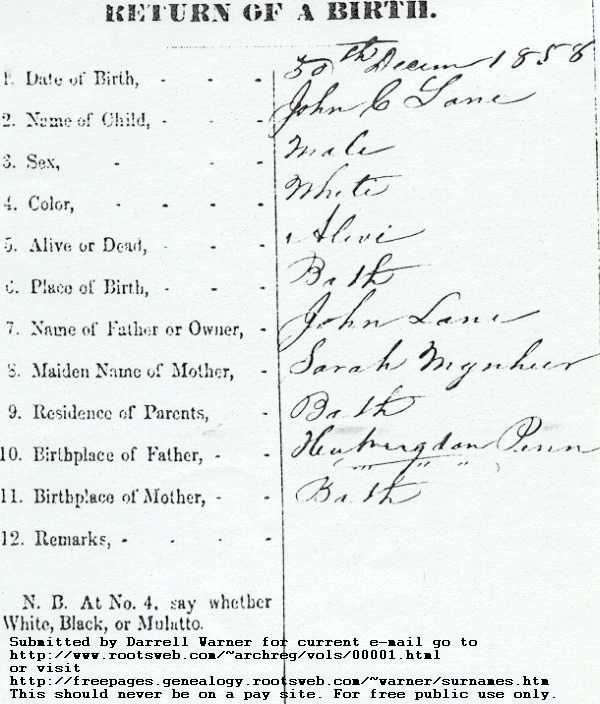 RETURN OF A BIRTH.
1. Date of Birth, - - - 30th Decem 1858
2. Name of Child, - - - John C Lane
3. Sex, - - - Male
4. Color, - - - - White
5. Alive or Dead, - - - Alive
6. Place of Birth, - - - Bath
7. Name of Father or Owner, - John Lane
8. Maiden Name of Mother, - Sarah Mynheer
9. Residence of Parents, - Bath
10. Birthplace of Father, - - Penn
11. Birthplace of Mother, - - Bath
12. Remarks, - - - -
N. B. At No. 4, say whether
White, Black, or Mulatto.
Submitted by Darrell Warner for current e-mail go to
http://www.rootsweb.com/~archreg/vols/00001.html
or visit
http://freepages.genealogy.rootsweb.com/~warner/surnames.htm
This should never be on a pay site. For free public use only.